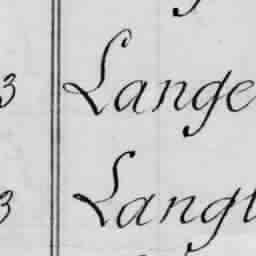 3 Lange
3 Langl